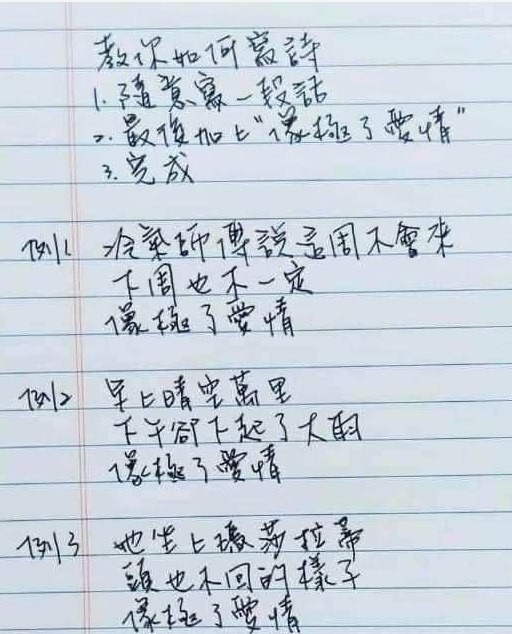 教你如何寫詩
1. 隨意寫一段話
2. 最後加上"像極了愛情"
3. 完成
例1 冷氣師傅說這周不會來
下周也不一定
像極了愛情
例2 早上晴空萬里
下午卻下起了大雨
像極了愛情
例3 她坐上瑪莎拉蒂
頭也不回的樣子
像極了愛情